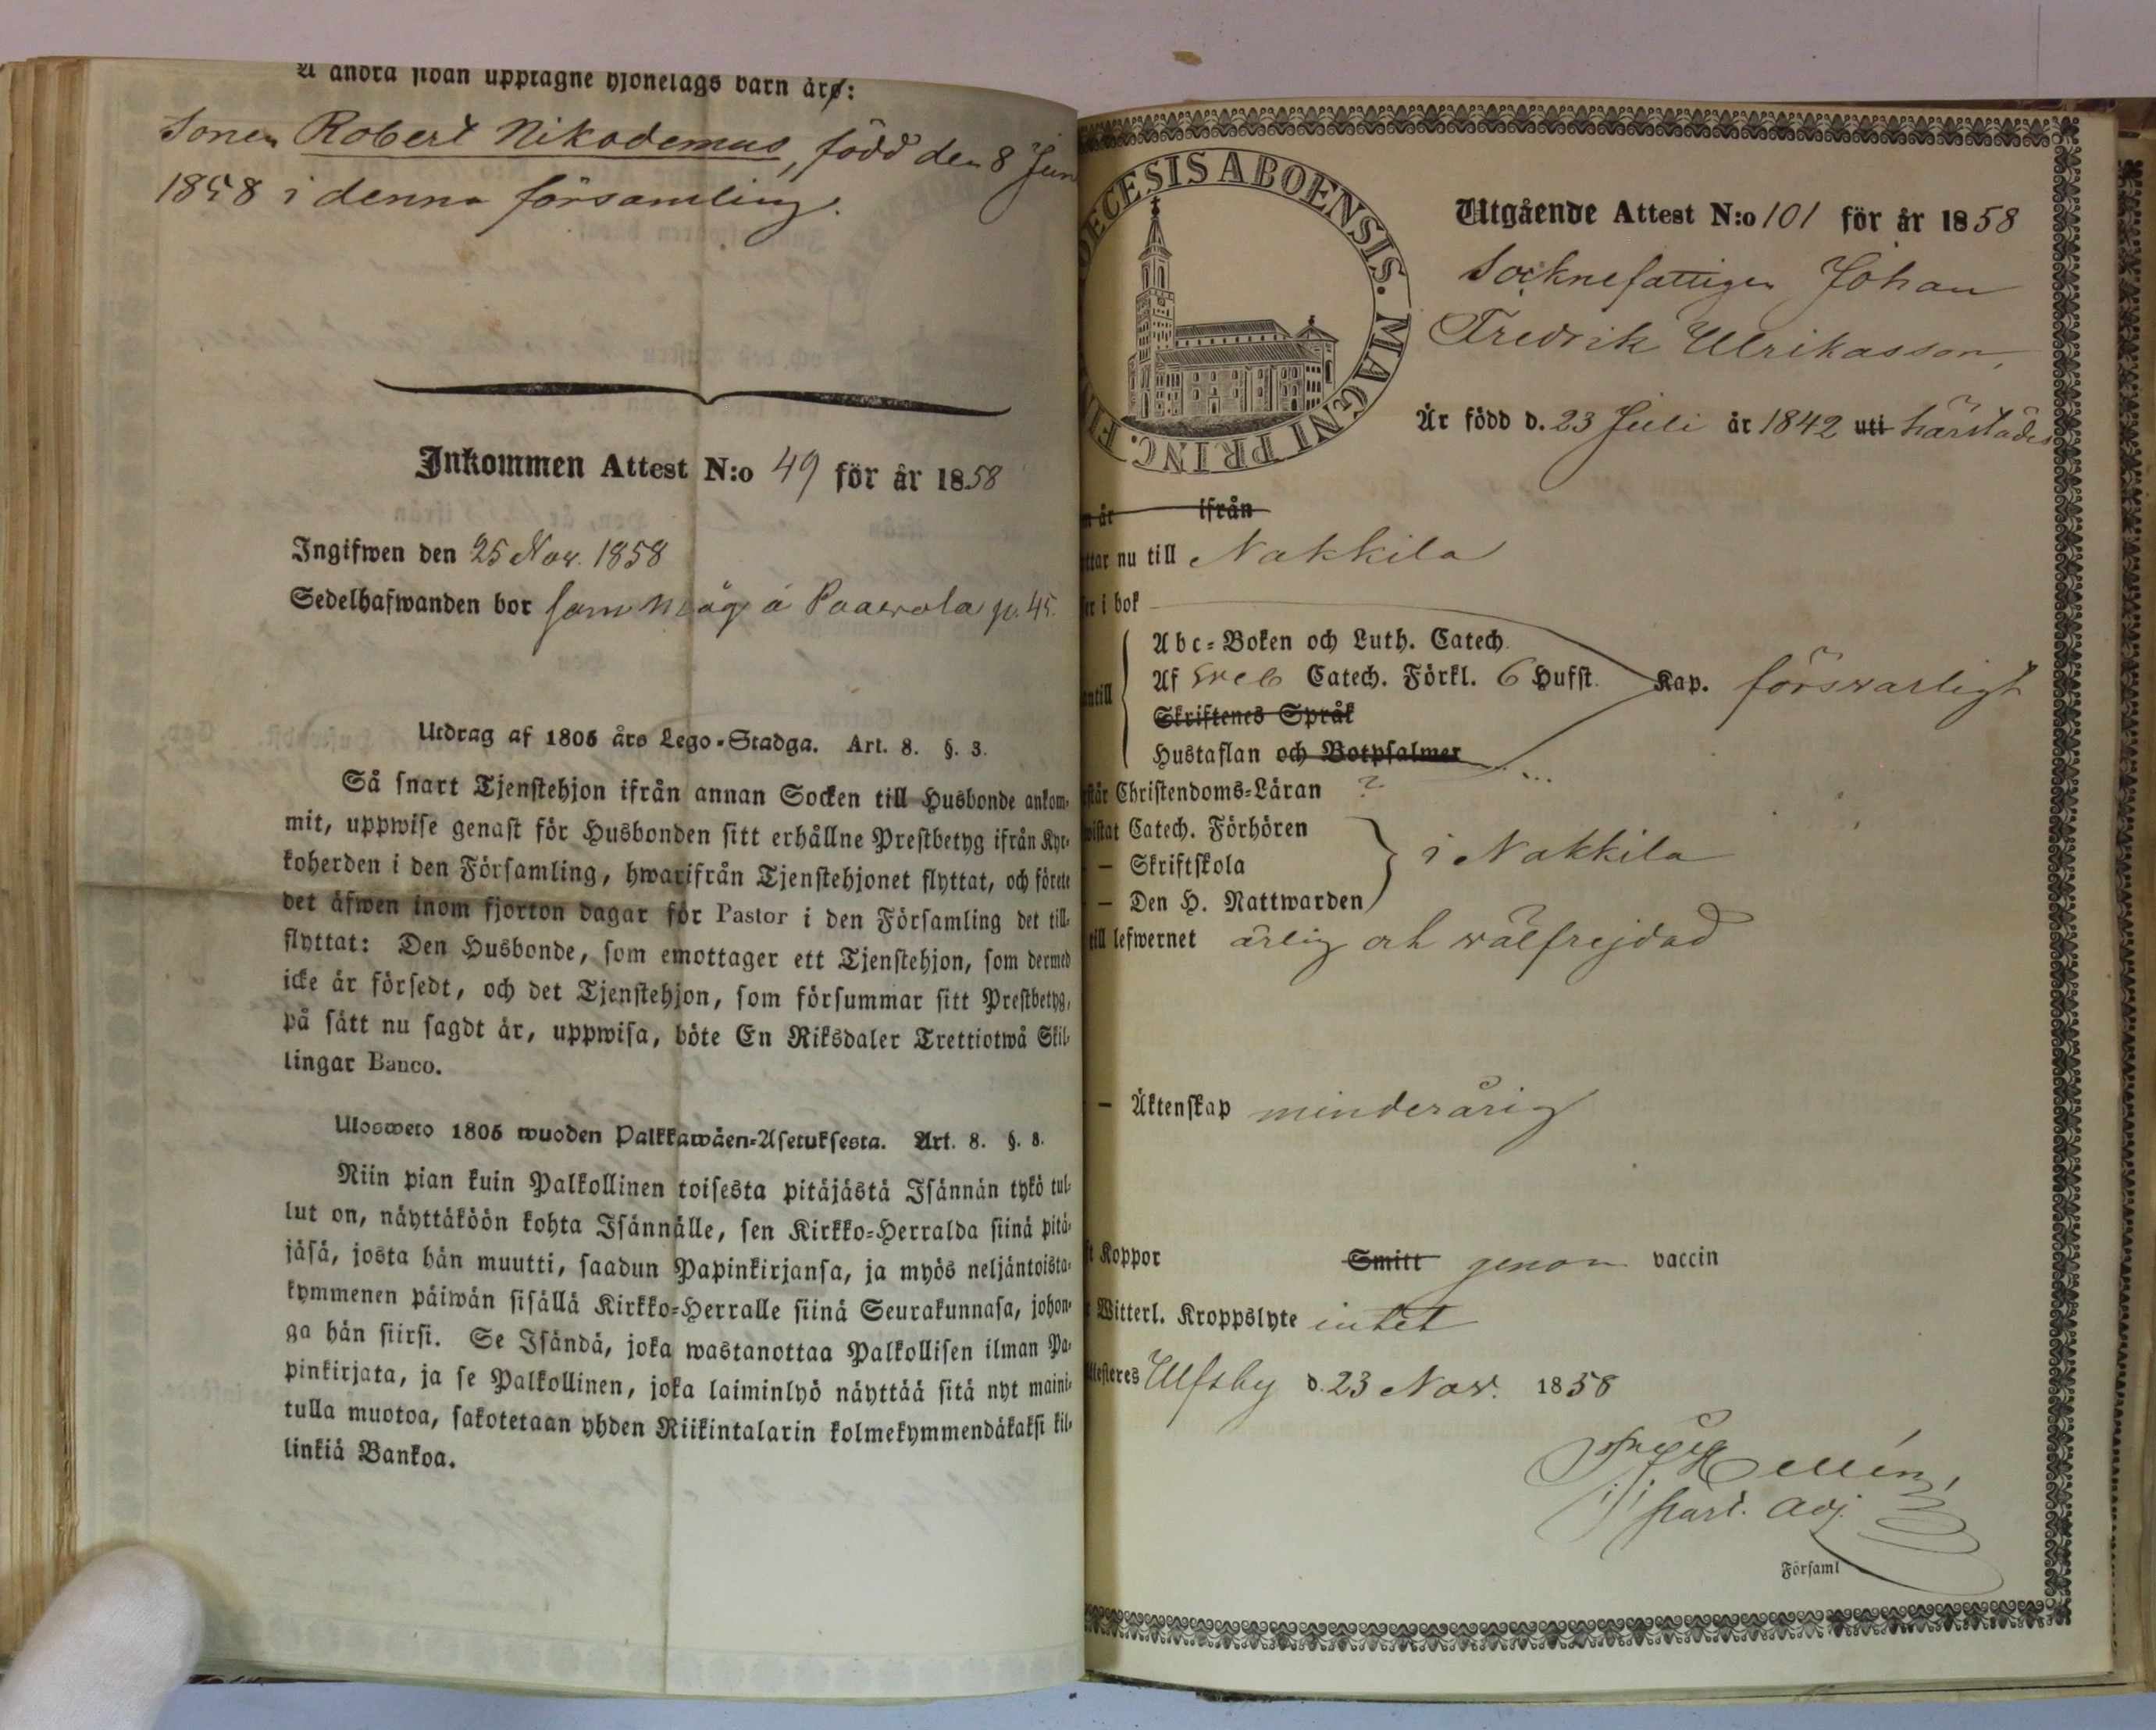 Å andra sidan upptagne hjonelags barn är:
Sonen Robert Nikodemus, född den 8 Jun
1858 i denna församling.
Inkommen Attest N:o 49 för år 1858
Ingifwen den 25 Nov. 1858
Sedelhafwanden bor som måg å Paavola p. 45.
Utdrag af 1805 års Lego-Stadga. Art. 8. §. 3.
Så snart Tjenstehjon ifrån annan Socken till Husbonde ankom-
mit, uppwise genast för Husbonden sitt erhållne Prestbetyg ifrån Kyr-
koherden i den Församling, hwarifrån Tjenstehjonet flyttat, och förete
det äfwen inom fjorton dagar för Pastor i den Församling det till-
flyttat: Den Husbonde, som emottager ett Tjenstehjon, som dermed
icke är försedt, och det Tjenstehjon, som försummar sitt Prestbetyg,
på sätt nu sagdt är, uppwisa, böte En Riksdaler Trettiotwå Skil-
lingar Banco.
Ulosweto 1805 wuoden Palkkawäen-Asetuksesta. Art. 8. §. 3.
Niin pian kuin Palkollinen toisesta pitäjästä Isännän tykö tul-
lut on, näyttäköön kohta Isännälle, sen Kirkko-Herralda siinä pitä-
jäsä, josta hän muutti, saadun Papinkirjansa, ja myös neljäntoista-
kymmenen päiwän sisällä Kirkko-Herralle siinä Seurakunnasa, johon-
ga hän siirsi. Se Isändä, joka wastanottaa Palkollisen ilman Pa-
pinkirjata, ja se Palkollinen, joka laiminlyö näyttää sitä nyt maini-
tulla muotoa, sakotetaan yhden Riikintalarin kolmekymmendäkaksi kil-
linkiä Bankoa.
ŒCESIS ABOENSIS. MAGNI PRINC. FIN
Utgående Attest N:o 101 för år 1858
Socknefattigen Johan
Fredrik Ulrikasson,
Är född d. 23 Juli år 1842 uti härstädes
år ifrån
ttar nu till Nakkila
er i bok
antill
Abc-Boken och Luth. Catech.
Af Sveb Catech. Förkl. 6 Hufst. Kap. försvarligt
Skriftenes Språk
Hustaflan och Botpsalmer
står Christendoms-Läran ?
wistat Catech. Förhören
— Skriftskola i Nakkila
— Den H. Nattwarden
till lefwernet ärlig och välfrejdad
— Äktenskap minderårig
t Koppor Smitt genom vaccin
Witterl. Kroppslyte intet
ttesteres Ulfsby d. 23 Nov. 1858
Hellén,
Past. Adj.
Församl